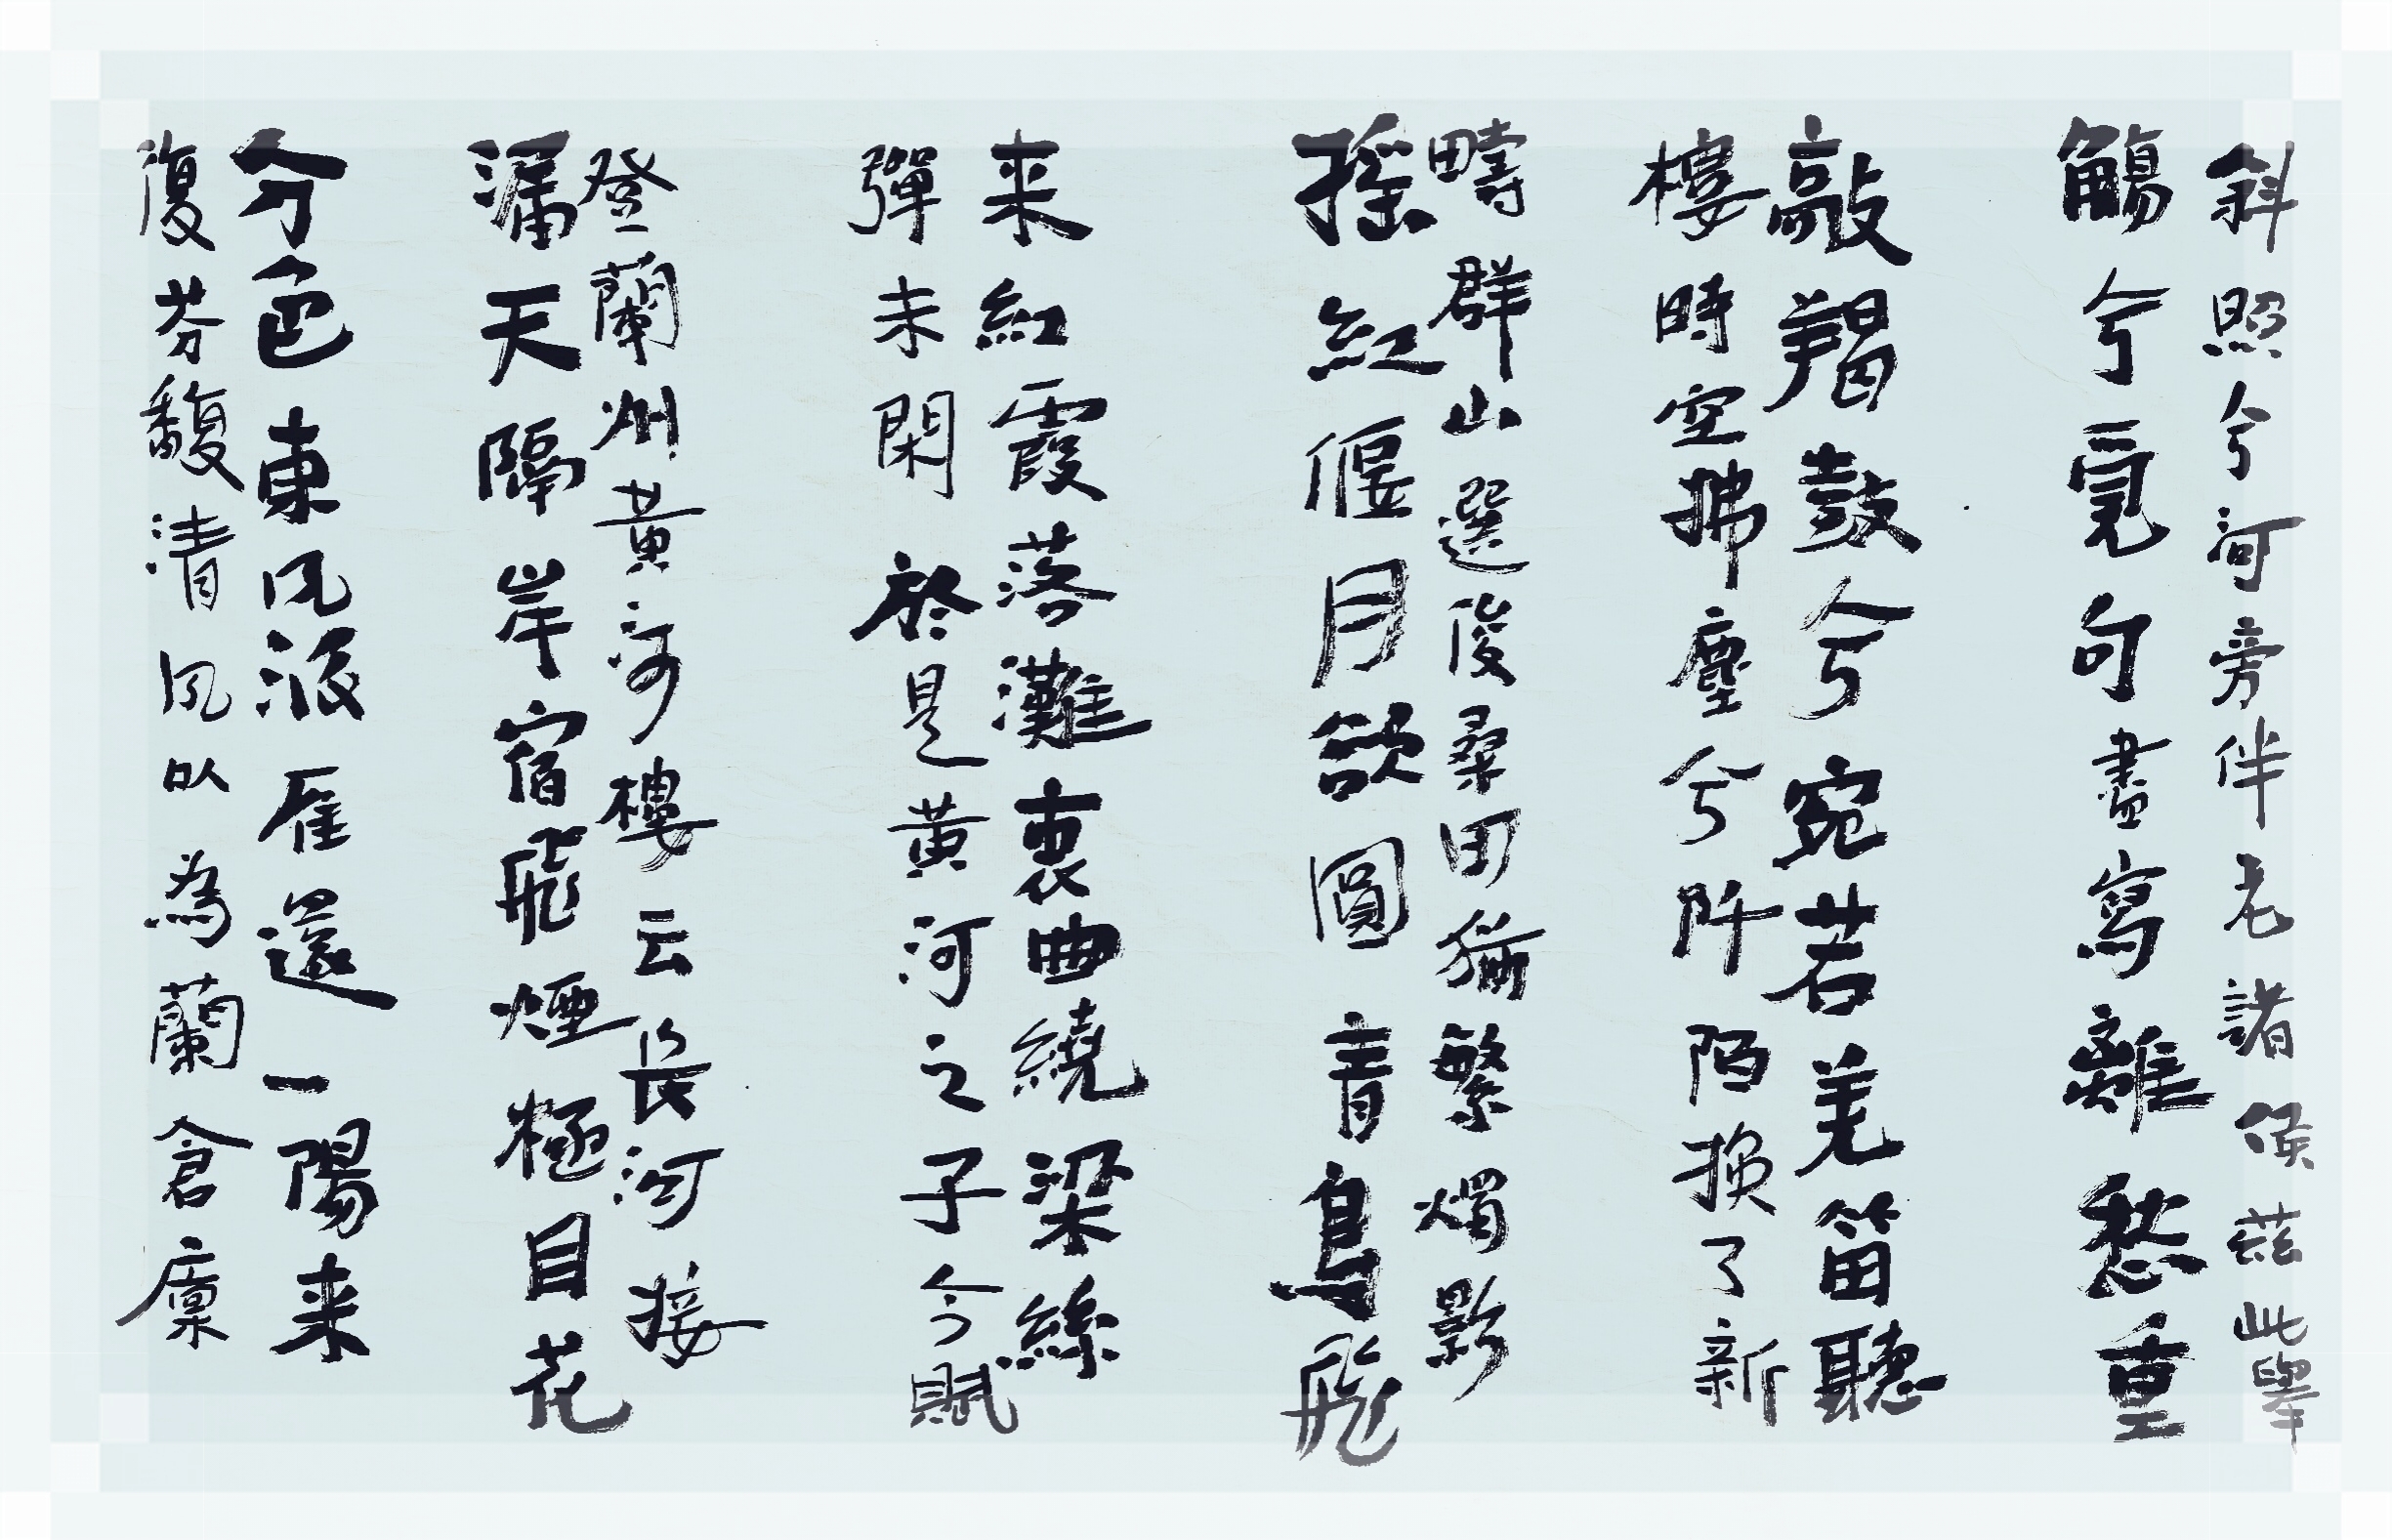 斜照兮河旁伴老諸侯茲此舉
觴兮覓句盡寫離愁重
敲羯鼓兮宛若羌笛聽
樓時空拂塵兮阡陌换了新
疇群山選後桑田猶繁燭影
搖紅偃月欲圓青鳥飛
来紅霞落灘裏曲繞梁絲
彈未閑於是黃河之子今賦
登蘭州黃河樓云長河接
漏天隔岸宿飛煙極目花
分色東风派雁還一陽来
復芬馥清风以為蘭倉廩